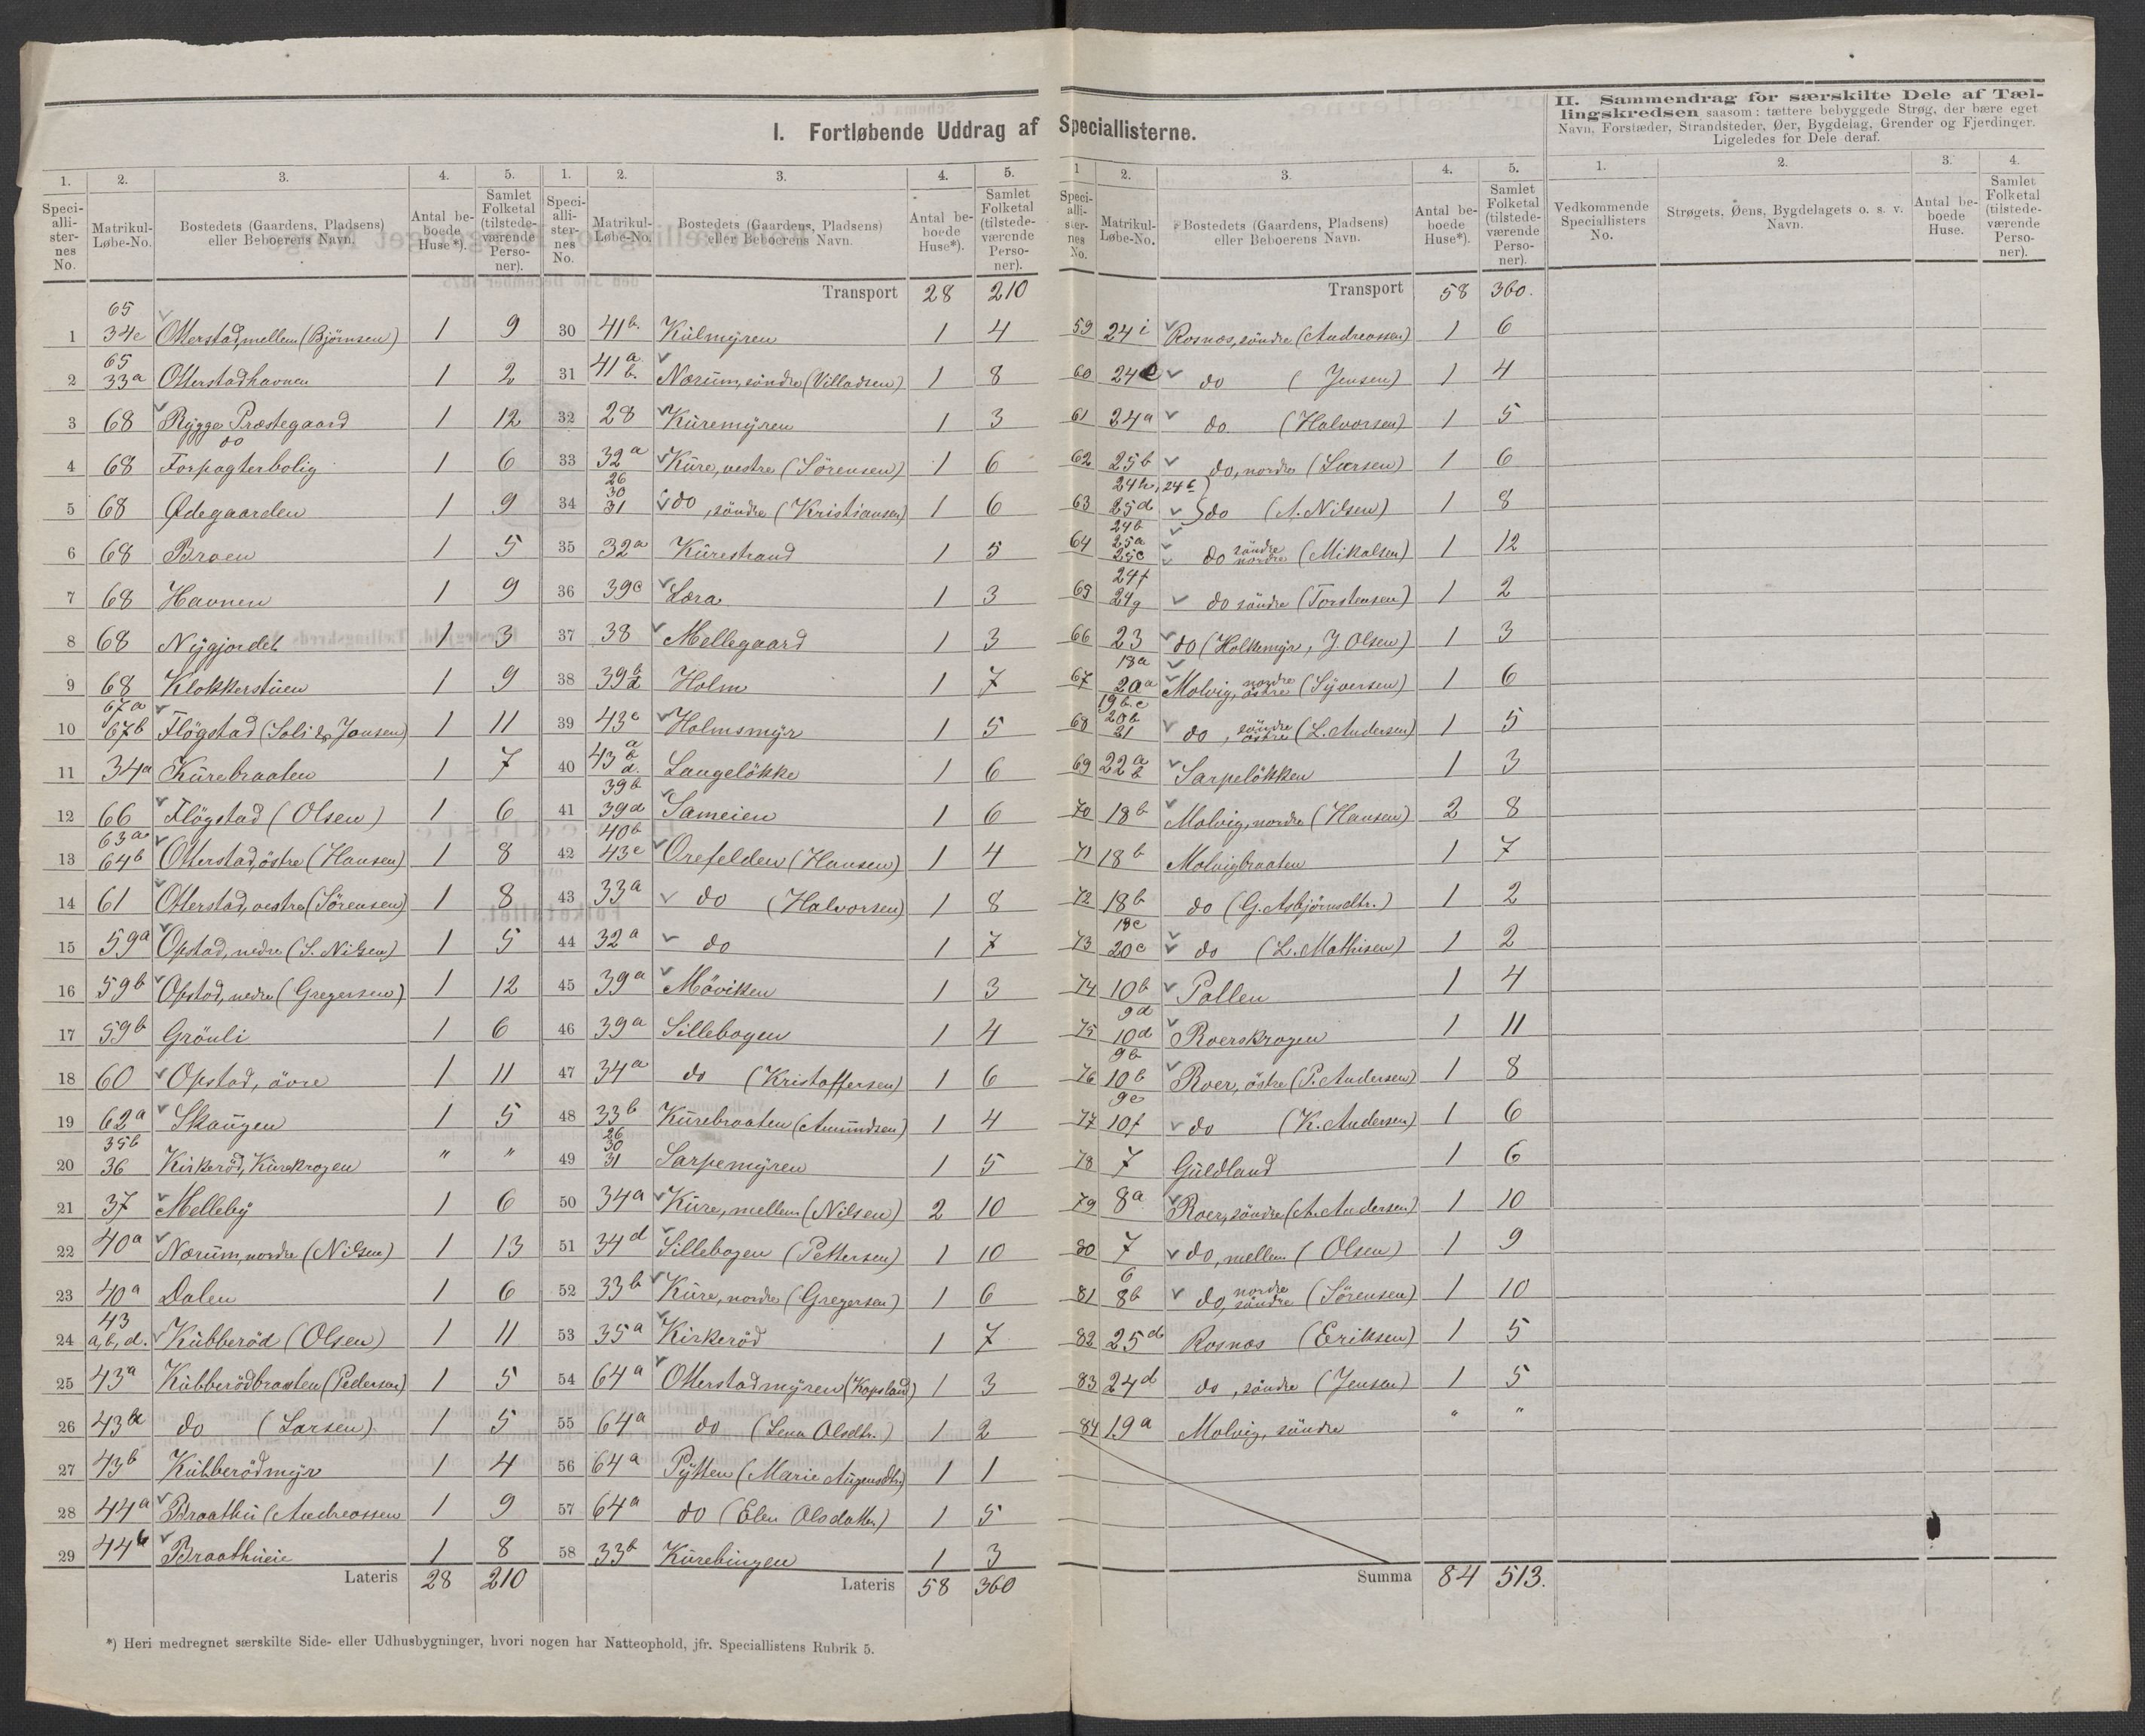 I. Fortløbende Uddrag af Speciallisterne.
II. Sammendrag for særskilte Dele af Tæl-
lingskredsen saasom: tættere bebyggede Strøg, der bære eget
Navn, Forstæder, Strandsteder, Øer, Bygdelag, Grender og Fjerdinger.
Ligeledes for Dele deraf.
1. 2. 3. 4. 5.
Speci-alli-ster-nes No. Matrikul-Løbe-No. Bostedets (Gaardens, Pladsens) eller Beboerens Navn. Antal be-boede Huse*). Samlet Folketal (tilstede-værende Perso-ner).
1 65 34c Otterstad, mellem (Björnsen) 1 9
2 65 33a Otterstadhavnen 1 2
3 68 Rygge Præstegaard 1 12
4 68 do Forpagterbolig 1 6
5 68 Ødegaarden 1 9
6 68 Braen 1 5
7 68 Havnen 1 9
8 68 Nygjordet 1 3
9 68 Klokkerstuen 1 9
10 67a 67b Flögstad (Soli & Jonsen) 1 11
11 34a Kurebraaten 1 7
12 66 Flögstad (Olsen) 1 6
13 63a 64b Otterstad, östre (Hansen) 1 8
14 61 Otterstad, vestre (Sörensen) 1 8
15 59a Opstad, nedre (S. Nilsen) 1 5
16 59b Opstad, nedre (Gregersen) 1 12
17 59b Grönli 1 6
18 60 Opstad, övre 1 11
19 62a Skaugen 1 5
20 35b 36 Kirkeröd, Kurekrogen " "
21 37 Melleby 1 6
22 40a Nærum, nordre (Nilsen) 1 13
23 40a Dalen 1 6
24 43 a, b, d. Kubberöd (Olsen) 1 11
25 43a Kubberödbraaten (Pedersen) 1 5
26 43d do (Larsen) 1 5
27 43b Kubberödmyr 1 4
28 44a Braathu (Andreassen 1 9
29 44b Braathueie 1 8
Lateris 28 210
1. 2. 3. 4. 5.
Speci-alli-ster-nes No. Matrikul-Løbe-No. Bostedets (Gaardens, Pladsens) eller Beboerens Navn. Antal be-boede Huse*). Samlet Folketal (tilstede-værende Perso-ner).
Transport 28 210
30 41b. Kulmyren 1 4
31 41 a b. Nærum, söndre (Villadsen) 1 8
32 28 Kuremyren 1 3
33 32a Kure, vestre (Sörensen) 1 6
34 26 30 31 do, söndre (Kristiansen) 1 6
35 32a Kurestrand 1 5
36 39c Lara 1 3
37 38 Mellegaard 1 3
38 39 b d Holm 1 7
39 43c Holmsmyr 1 5
40 43 a b d. Langelökke 1 6
41 39b 39d Sameien 1 6
42 40b 43e Orefelden (Hansen) 1 4
43 33a do (Halvorsen) 1 8
44 32a do 1 7
45 39a Möviken 1 3
46 39a Sillebogen 1 4
47 34a do (Kristoffersen) 1 6
48 33b Kurebraaten (Amundsen) 1 4
49 26 30 31 Sarpemyren 1 5
50 34a Kure, mellem (Nilsen) 2 10
51 34d Sillebogen (Pettersen) 1 10
52 33b Kure, nordre (Gregersen) 1 6
53 35a Kirkeröd 1 7
54 64a Otterstadmyren (Kopsland) 1 3
55 64a do (Lena Olsdtr.) 1 2
56 64a Pytten (Marie Augensdtr) 1 1
57 64a do (Elen Olsdatter) 1 5
58 33b Kurebingen 1 3
Lateris 58 360
1 2. 3. 4. 5.
Speci-alli-ster-nes No. Matrikul-Løbe-No. Bostedets (Gaardens, Pladsens) eller Beboerens Navn. Antal be-boede Huse*). Samlet Folketal (tilstede-værende Perso-ner).
Transport 58 360.
59 24i Rosnæs, söndre (Andreassen) 1 6
60 24e do (Jensen) 1 4
61 24a do (Halvorsen) 1 5
62 25b do, nordre (Larsen) 1 6
63 24h, 24c 25d do (A. Nilsen) 1 8
64 24b 25a 25c do söndre nordre (Mikalsen) 1 12
65 24f 24g do söndre (Torstensen) 1 2
66 23 do (Holkemyr, J. Olsen) 1 3
67 18a 20a Molvig, nordre östre (Syversen) 1 6
68 19b.c 20b 21 do, söndre östre (L. Andersen) 1 5
69 22 a b Sarpelökken 1 3
70 18b Molvig, nordre (Hansen) 2 8
71 18b Molvigbraaten 1 7
72 18b do (G. Asbjörnsdtr.) 1 2
73 18c 20c do (L. Mathisen) 1 2
74 10b Pollen 1 4
75 9d 10d Roerskrogen 1 11
76 9b 10b Roer, östre (P. Andersen) 1 8
77 9c 10f do (K. Andersen) 1 6
78 7 Guldland 1 6
79 8a Roer, söndre (A. Andersen) 1 10
80 7 do, mellem (Olsen) 1 9
81 6 8b do, nordre söndre (Sörensen) 1 10
82 25d Rosnæs (Eriksen) 1 5
83 24d do, söndre (Jensen) 1 5
84 19a Molvig, söndre " "
Summa 84 513.
1. 2. 3. 4.
Vedkommende Speciallisters No. Strøgets, Øens, Bygdelagets o. s. v. Navn. Antal be-boede Huse. Samlet Folketal (tilstede-værende Perso-ner).
*) Heri medregnet særskilte Side- eller Udhusbygninger, hvori nogen har Natteophold, jfr. Speciallistens Rubrik 5.